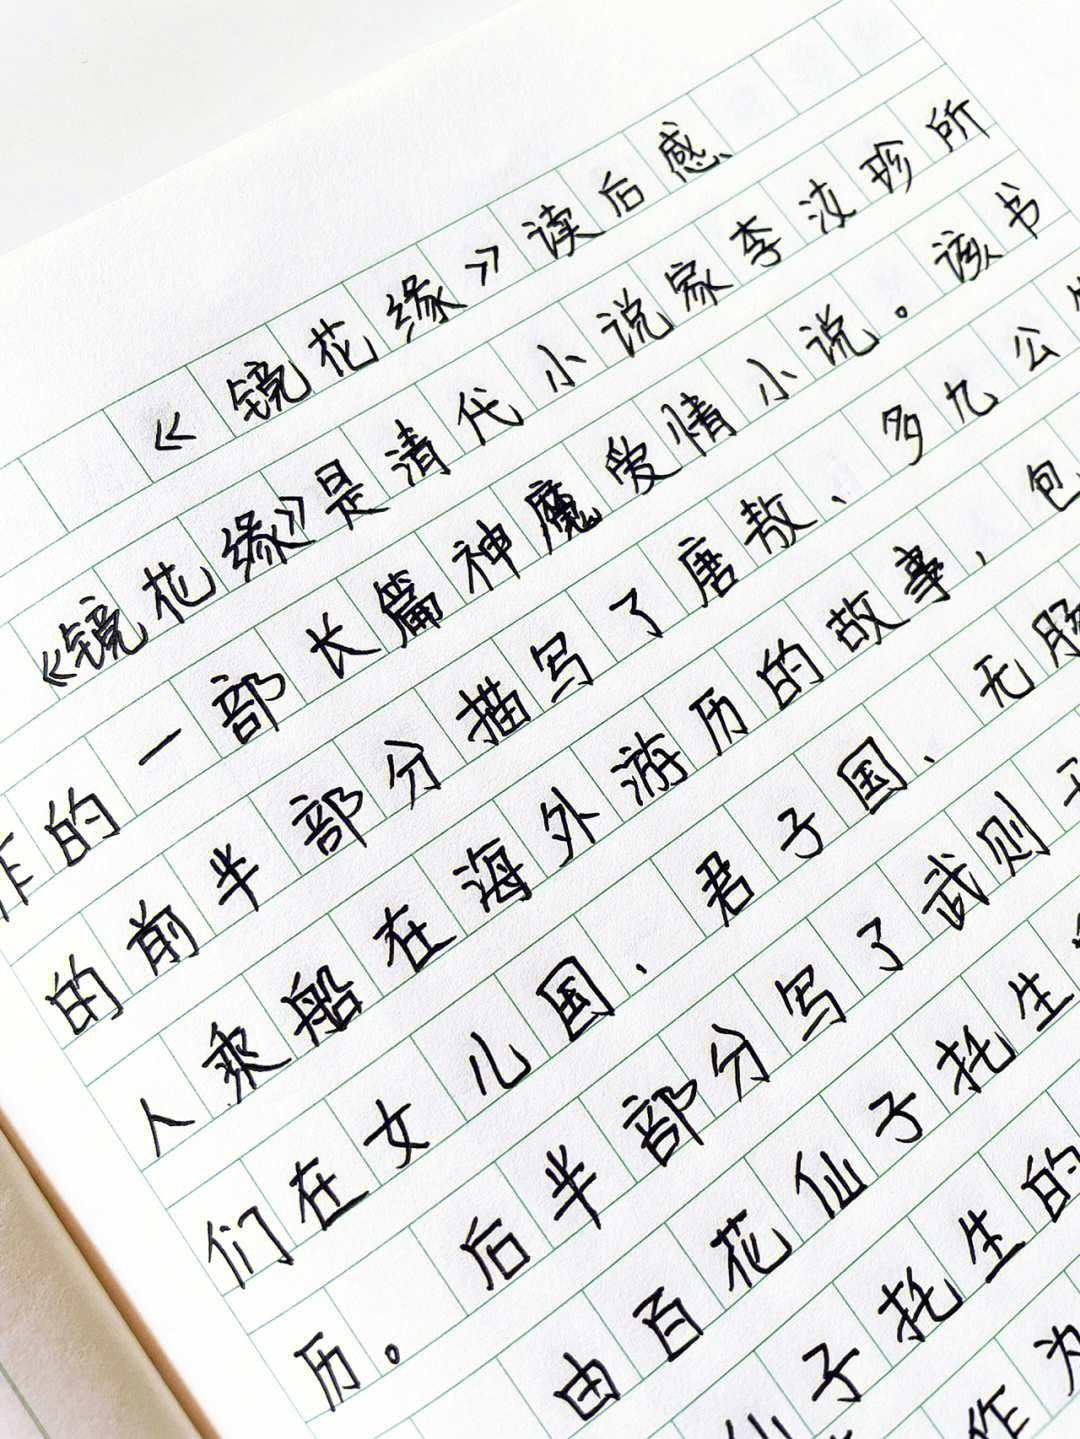 《镜花缘》读后感
《镜花缘》是清代小说家李汝珍所
作的一部长篇神魔爱情小说。该书
的前半部分描写了唐敖、多九公
人乘船在海外游历的故事，包
们在女儿国、君子国、无肠
历。后半部分写了武则
由百花仙子托生
仙子托生的
作为